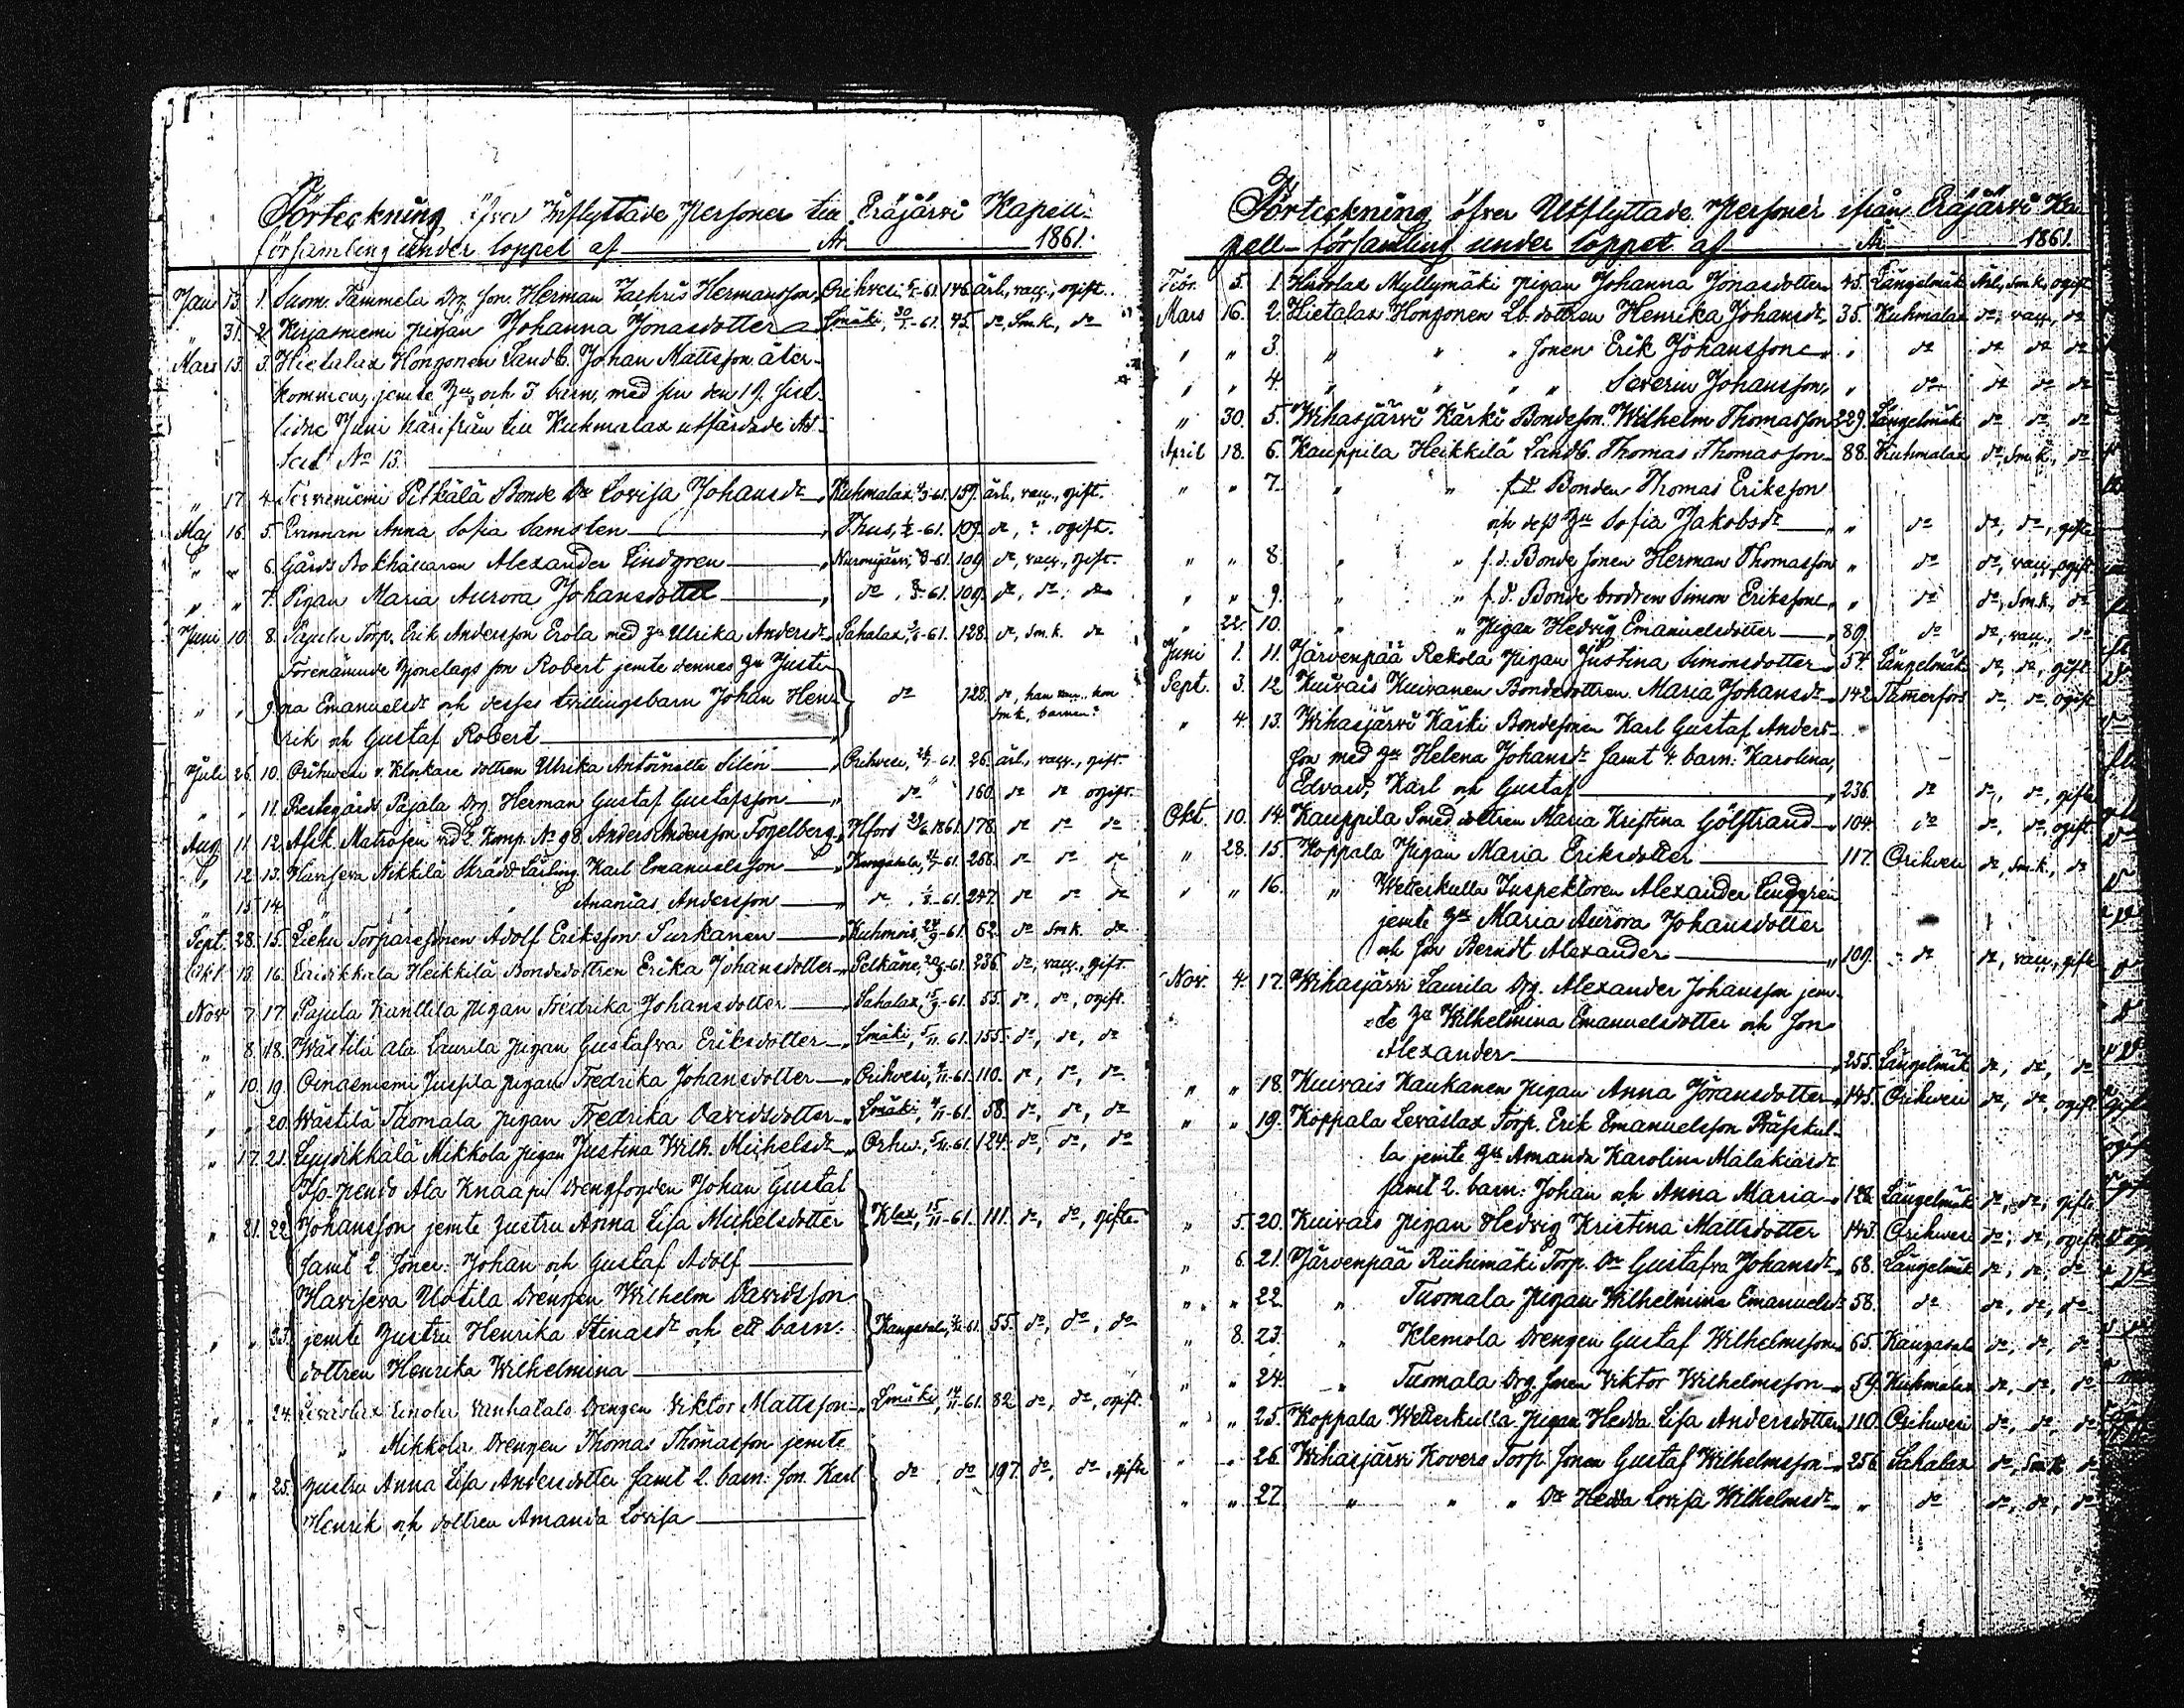 Förteckning öfver Inflyttade Personer till Eräjärvi Kapell
församling under loppet af År 1861.
Jan 13. 1. Suom. Tammela Drg. son. Herman Zachris Hermansson, Orihvesi, 61. 146. ärl., vacc., ogift.
" 31. 2. Kirjasniemi pigan Johanna Jonasdotter Lmäki, 30/1-61. 45. do, Smk., do
Mars 13. 3. Hietalax Hongonen Landb. Johan Mattsson åter-
kommen, jemte hu och 3 barn, med sin den 19 sist-
lidne Juni härifrån till Kuhmalax utfärdade Att-
test No 13.
" 17. 4. Järveniemi Pitkälä Bonde Dr Lovisa Johansdr Kuhmalax, 61. 159. ärl., vacc., gift.
Maj 16. 5. Qvinnan Anna Sofia Samsten Thus, -61. 109. do, ?, ogift.
" " 6. Gårds Bokhållaren Alexander Lindgren Nurmijärvi, -61. 109. do, vacc., gift.
" " 7. Pigan Maria Aurora Johansdotter do, -61. 109. do, do, do
Juni 10. 8. Pajula Torp. Erik Andersson Erola med hu Ulrika Andersdr Sahalax, -61. 128. do, Smk. do
Förenämnde hjonelags son Robert jemte dennes hu Justi-
" " 9. na Emanuelsdr och desses tvillingsbarn Johan Hen- do 128. do, han vacc., hon
rik och Gustaf Robert Smk., barnen?
Juli 26. 10. Orihvesi v. Klockare dottren Ulrika Antoinette Silén Orihvesi, -61. 26. ärl., vacc., gift.
" " 11. Prestegårds Pajala Drg. Herman Gustaf Gustafsson do 160. do do ogift.
Aug. 11. 12. Afsk. Matrosen vid 2. Komp. No 98 Anders Andersson Fogelberg Hfors 1861. 178. do do do
" 12. 13. Haviseva Nikkilä Skrädd. Lärling. Karl Emanuelsson Kangasala, -61. 256. do do do
" 15. 14. " " " Ananias Andersson do, -61. 247. do do do
Sept. 28. 15. Lieku Torparesonen Adolf Eriksson Surkanen Kuhmois, -61. 62. do Smk. do
Okt. 18. 16. Heikkilä Bondedottren Erika Johansdotter Pelkäne, -61. 236. do, vacc., gift.
Nov 7. 17. Pajula Kanttila Pigan Fredrika Johansdotter Sahalax, -61. 55. do, do, ogift.
" 8. 18. Wästilä ala Laurila pigan Gustafva Eriksdotter Lmäki, 61. 155. do, do, do
" 10. 19. Jussila pigan Fredrika Johansdotter Orihvesi, 61. 110. do, do, do
" " 20. Wästilä Tuomala pigan Fredrika Davidsdotter Lmäki, 61. 58. do, do, do
" 17. 21. Lyydikkälä Mikkola pigan Justina Wilh. Michelsdr Orhv., 61. 124. do, do, do
Iso-pento Ala Knaapi Drengfogden Johan Gustaf
" 21. 22. Johansson jemte hustru Anna Lisa Michelsdotter Klax, 15/11-61. 111. do, do, gifte
samt 2 söner: Johan och Gustaf Adolf
Haviseva Uotila Drengen Wilhelm Davidsson
" " 23. jemte hustru Henrika Stinasdr och ett barn: Kangasala, 61. 55. do, do, do
dottren Henrika Wilhelmina
" " 24. Leväslax Einola Vanhatalo Drengen Viktor Mattsson Lmäki, 61. 82. do, do, ogift.
" Mikkola Drengen Thomas Thomasson jemte
" " 25. hustru Anna Lisa Andersdotter samt 2. barn: son. Karl do, do 197. do, do, gifte
Henrik och dottren Amanda Lovisa
Förteckning öfver Utflyttade Personer ifrån Eräjärvi Ka-
pell-församling under loppet af År 1861.
Febr. 5. 1. Hirtolax Myllymäki pigan Johanna Jonasdotter 45. Längelmäki ärl., Smk., ogift
Mars 16. 2. Hietalax Hongonen Lb. dottren Henrika Johansdr 35. Kuhmalax do, vacc., do
" " 3. " " " sonen Erik Johansson " do do do do
" " 4. " " " " Severin Johansson, " do do do do
" 30. 5. Wihasjärvi Kärki Bondeson. Wilhelm Thomasson 229. Längelmäki do do do
April 18. 6. Kauppila Heikkilä Landb. Thomas Thomasson 88. Kuhmalax do, Smk., do
" " 7. " " f.d. Bonden Thomas Eriksson
och dess hu Sofia Jakobsdr " do do, do, gifte
" " 8. " " f.d. Bonde sonen Herman Thomasson " do do, vacc., ogift
" " 9. " " f.d. Bonde brodren Simon Eriksson " do do, Smk., do
" 22. 10. " " Pigan Hedvig Emanuelsdotter 89. do do, vacc., do
Juni 1. 11. Järvenpää Rekola pigan Justina Simonsdotter 54. Längelmäki do, do, gift.
Sept. 3. 12. Kuivais Kuivanen Bondedottren Maria Johansdr 142. Tamerfors do, do, ogift
" 4. 13. Wihasjärvi Kärki Bondesonen Karl Gustaf Anders-
son med hu Helena Johansdr samt 4 barn: Karolina,
Edvard, Karl och Gustaf 236. do do, do, gifte
Okt. 10. 14. Kauppila Smed dottren Maria Kristina Gölstrand 104. do do, do, ogift.
" 28. 15. Koppala Pigan Maria Eriksdotter 117. Orihvesi do, Smk., do
" " 16. " Wetterkulla Inspektoren Alexander Lindgren
jemte hu Maria Aurora Johansdotter
och son Berndt Alexander 109. do do, vacc., gifte
Nov. 4. 17. Wihasjärvi Laurila Drg. Alexander Johansson jem-
te hu Wilhelmina Emanuelsdotter och son
Alexander 255. Längelmäki do, do, do
" " 18. Kuivais Kaukanen pigan Anna Jöransdotter 145. Orihvesi do, do, ogift
" " 19. Koppala Leväslax Torp. Erik Emanuelsson Räfskul-
la jemte hu Amanda Karolina Malakiasdr
samt 2. barn: Johan och Anna Maria 128. Längelmäki do, do, gifte
" 5. 20. Kuivais Pigan Hedvig Kristina Mattsdotter 143. Orihvesi do, do, ogift
" 6. 21. Järvenpää Riihimäki Torp. Dr Gustafva Johansdr 68. Längelmäki do, do, do
" " 22. " Tuomala Pigan Wilhelmina Emanuelsdr 58. do do, do, do
" 8. 23. " Klemola Drengen Gustaf Wilhelmsson 65. Kangasala do, do, do
" " 24. " Tuomala Drg. sonen Viktor Wilhelmsson 59. Kuhmalax do, do, do
" " 25. Koppala Wetterkulla Pigan Hedda Lisa Andersdotter 110. Orihvesi do, do, do
" " 26. Wihasjärvi Kovero Torp. sonen Gustaf Wilhelmsson 256. Sahalax do, Smk. do
" " 27. " " " Dr Hedda Lovisa Wilhelmsdr " do do, do, do